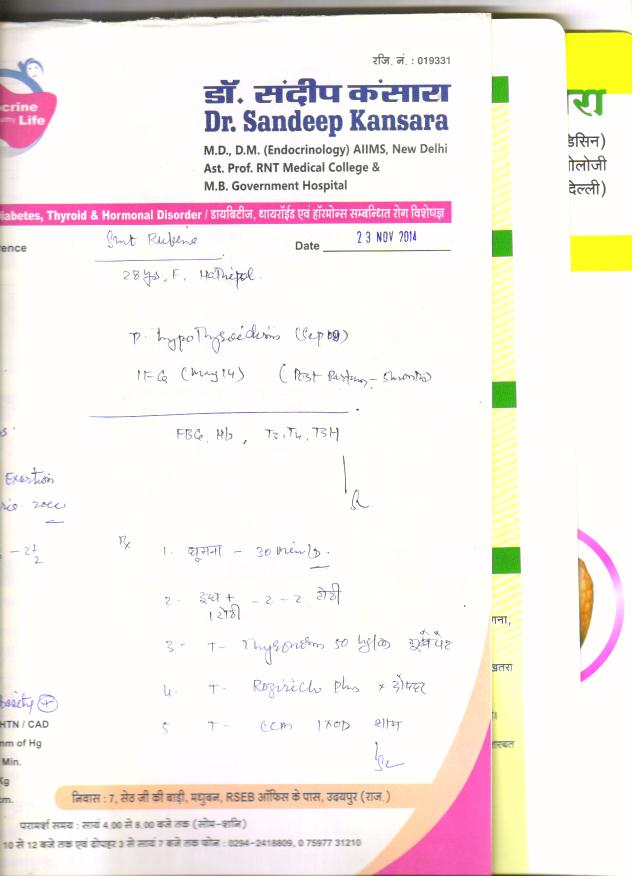 रजि. नं. : 019331
crine
Life
डॉ. संदीप कंसारा
Dr. Sandeep Kansara
M.D., D.M. (Endocrinology) AIIMS, New Delhi
Ast. Prof. RNT Medical College &
M.B. Government Hospital
iabetes, Thyroid & Hormonal Disorder / डायबिटीज, थायरॉईड एवं हॉरमोन्स सम्बन्धित रोग विशेषज्ञ
ence
Smt Rubina
Date 23 NOV 2014
28 yrs, F.
P. hypothyroidism (Sep 09)
IFG (May 14) (Post Partum - 5 months)
FBG, Hb, T3, T4, TSH
Exertion
- 2 1/2
Rx
1. घूमना - 30 min/D.
2. दूध + 1 रोटी - 2 - 2 रोटी
3 - T - 50
4. T - Plus x दोपहर
5 T - CCM 1XOD शाम
HTN / CAD
mm of Hg
Min.
Kg
cm.
निवास : 7, सेठ जी की बाड़ी, मधुबन, RSEB ऑफिस के पास, उदयपुर (राज.)
परामर्श समय : सायं 4.00 से 8.00 बजे तक (सोम-शनि)
10 से 12 बजे तक एवं दोपहर 3 से सायं 7 बजे तक फोन : 0294-2418809, 0 75977 31210
रा
डिसिन)
ोलोजी
दिल्ली)
गना,
खतरा
ारबत